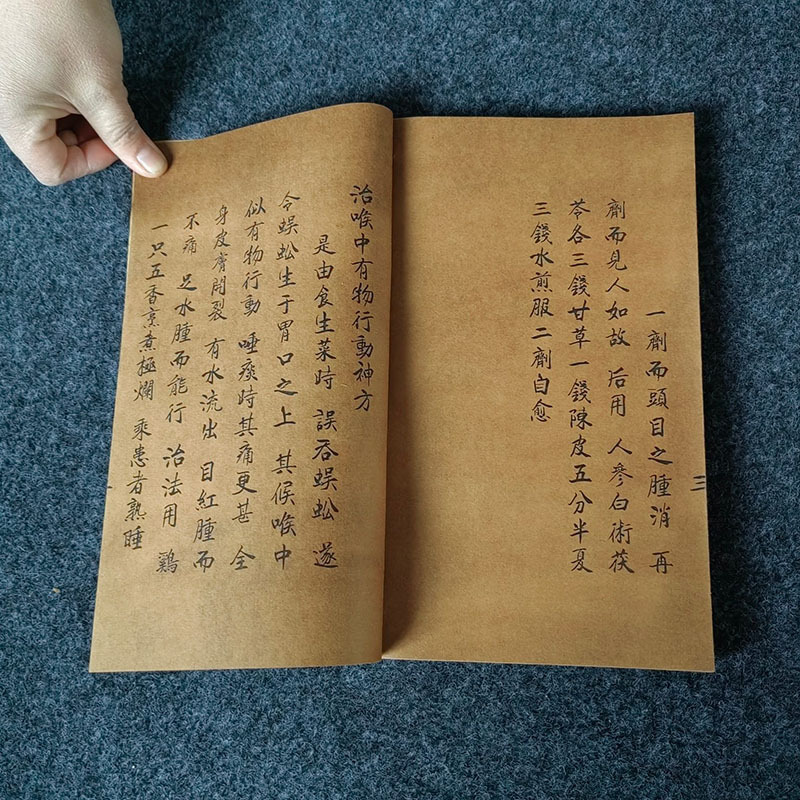 一劑而頭目之腫消 再
劑而見人如故 后用 人參白術茯
苓各三錢甘草一錢陳皮五分半夏
三錢水煎服二劑自愈
三
治喉中有物行動神方
是由食生菜時 誤吞蜈蚣 遂
令蜈蚣生于胃口之上 其候喉中
似有物行動 唾痰時其痛更甚 全
身皮膚開裂 有水流出 目紅腫而
不痛 足水腫而能行 治法用 鷄
一只五香烹煮極爛 乘患者熟睡